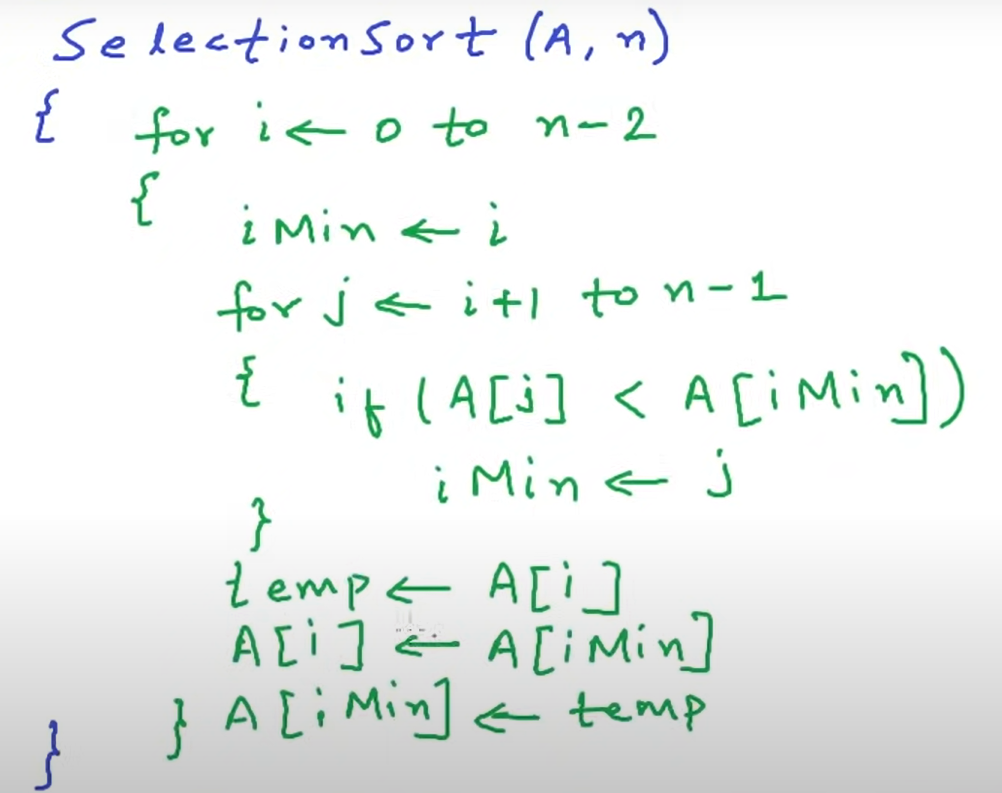 SelectionSort (A, n)
{ for i ← 0 to n-2
{
iMin ← i
for j ← i+1 to n-1
{ if (A[j] < A[iMin])
iMin ← j
}
temp ← A[i]
A[i] ← A[iMin]
} A[iMin] ← temp
}